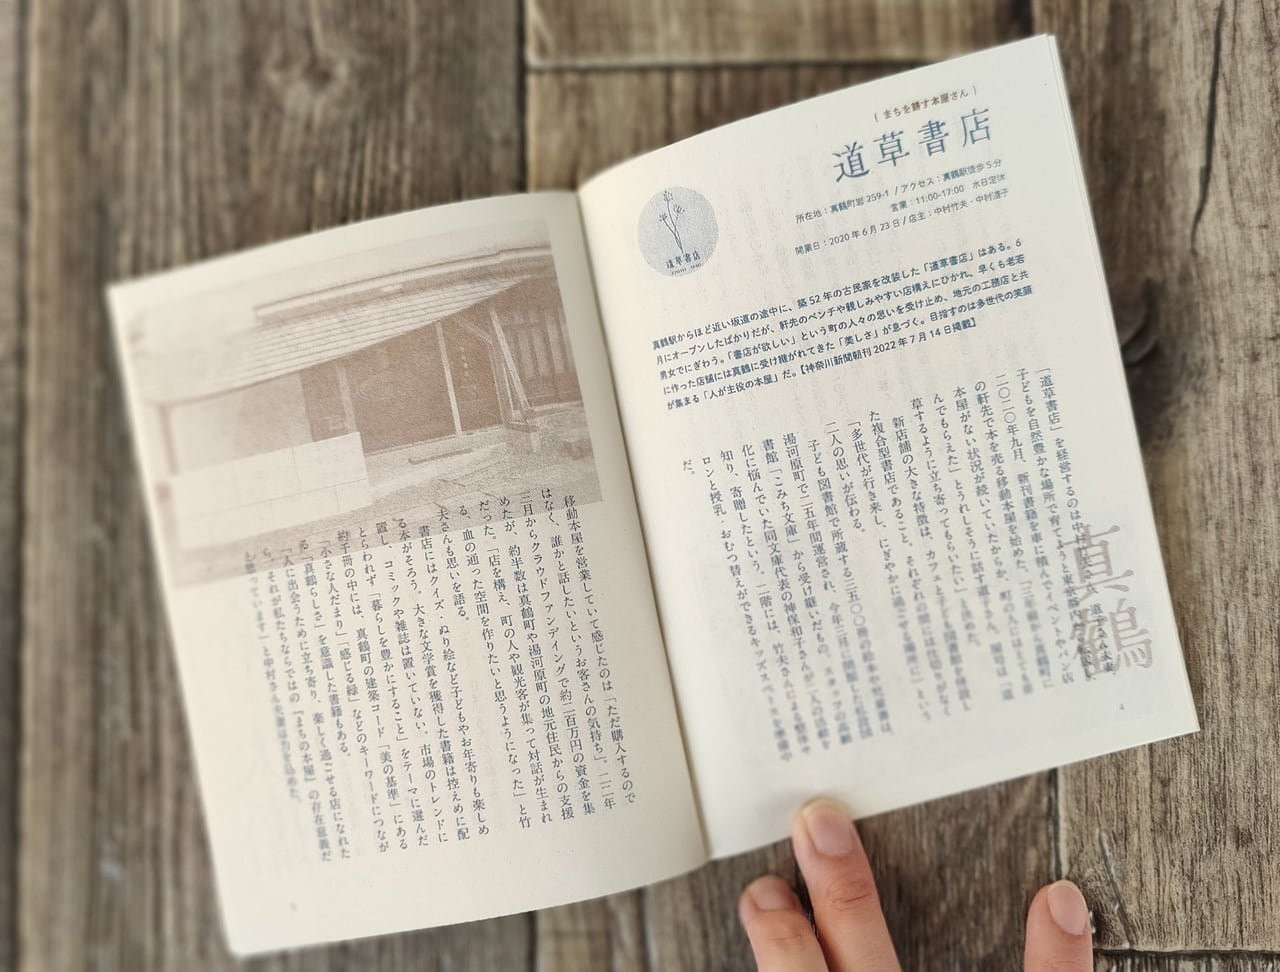 ( まちを耕す本屋さん )
道草書店
所在地：真鶴町岩 259-1 / アクセス：真鶴駅徒歩 5 分
営業：11:00-17:00　水日定休
開業日：2020 年 6 月 23 日 / 店主：中村竹夫・中村道子
道草書店
真鶴駅からほど近い坂道の途中に、築 52 年の古民家を改装した「道草書店」はある。6
月にオープンしたばかりだが、軒先のベンチや親しみやすい店構えにひかれ、早くも老若
男女でにぎわう。「書店が欲しい」という町の人々の思いを受け止め、地元の工務店と共
に作った店舗には真鶴に受け継がれてきた「美しさ」が息づく。目指すのは多世代の笑顔
が集まる「人が主役の本屋」だ。【神奈川新聞朝刊 2022 年 7 月 14 日掲載】
真鶴
「道草書店」を経営するのは中村
子どもを自然豊かな場所で育てようと東京都内
二〇二〇年九月、新刊書籍を車に積んでイベントやパン店
の軒先で本を売る移動本屋を始めた。
本屋がない状況が続いていたからか、町の人には
んでもらえた」とうれしそうに話す道子さん。屋号は「道
草するように立ち寄ってもらいたい」
新店舗の大きな特徴は、カフェと子ども図書館を併設し
た複合型書店であること。それぞれの間には仕切りがなく
「多世代が行き来し、にぎやかに過ごせる場所に」という
二人の思いが伝わる。
子ども図書館で所蔵する三五〇〇冊の絵本や児童書は、
湯河原町で二五年間運営され、今年三月に閉館した私設図
書館「こみち文庫」から受け継いだもの。スタッフの高齢
化に悩んでいた同文庫代表の神保和子さんが二人の活動を
知り、寄贈したという。二階には、竹夫さんによる整体サ
ロンと授乳・おむつ替えができるキッズスペースを準備中
だ。
4
移動本屋を営業していて感じたのは「ただ購入するので
はなく、誰かと話したいというお客さんの気持ち」。二二年
三月からクラウドファンディングで約二百万円の資金を集
めたが、約半数は真鶴町や湯河原町の地元住民からの支援
だった。「店を構え、町の人や観光客が集って対話が生まれ
る、血の通った空間を作りたいと思うようになった」と竹
夫さんも思いを語る。
書店にはクイズ・ぬり絵など子どもやお年寄りも楽しめ
る本がそろう。大きな文学賞を獲得した書籍は控えめに配
置し、コミックや雑誌は置いていない。市場のトレンドに
とらわれず「暮らしを豊かにすること」をテーマに選んだ
約千冊の中には、真鶴町の建築コード「美の基準」にある
「小さな人だまり」「感じる緑」などのキーワードにつなが
る「真鶴らしさ」を意識した書籍もある。
「人に出会うために立ち寄り、楽しく過ごせる店になれた
ら、それが私たちならではの『まちの本屋』の存在意義だ
と思っています」と中村さん夫妻は力を込めた。
5